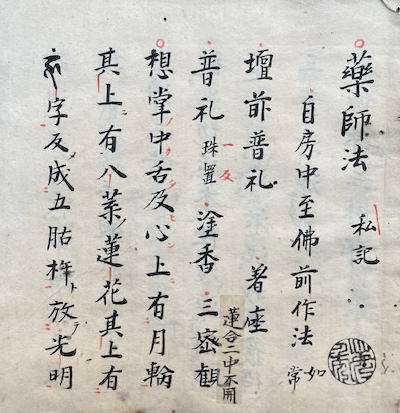 藥師法 私記
自房中至佛前作法 如常
壇前普礼 著座
普礼 珠置 塗香 三密観
蓮合二中不開
想掌中舌及心上有月輪
其上有八葉蓮花其上有
字反成五胋杵ト放テ光明